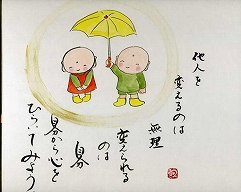 他人を
変えるのは
無理
変えられる
のは
自分
自分から心を
ひらいてみよう